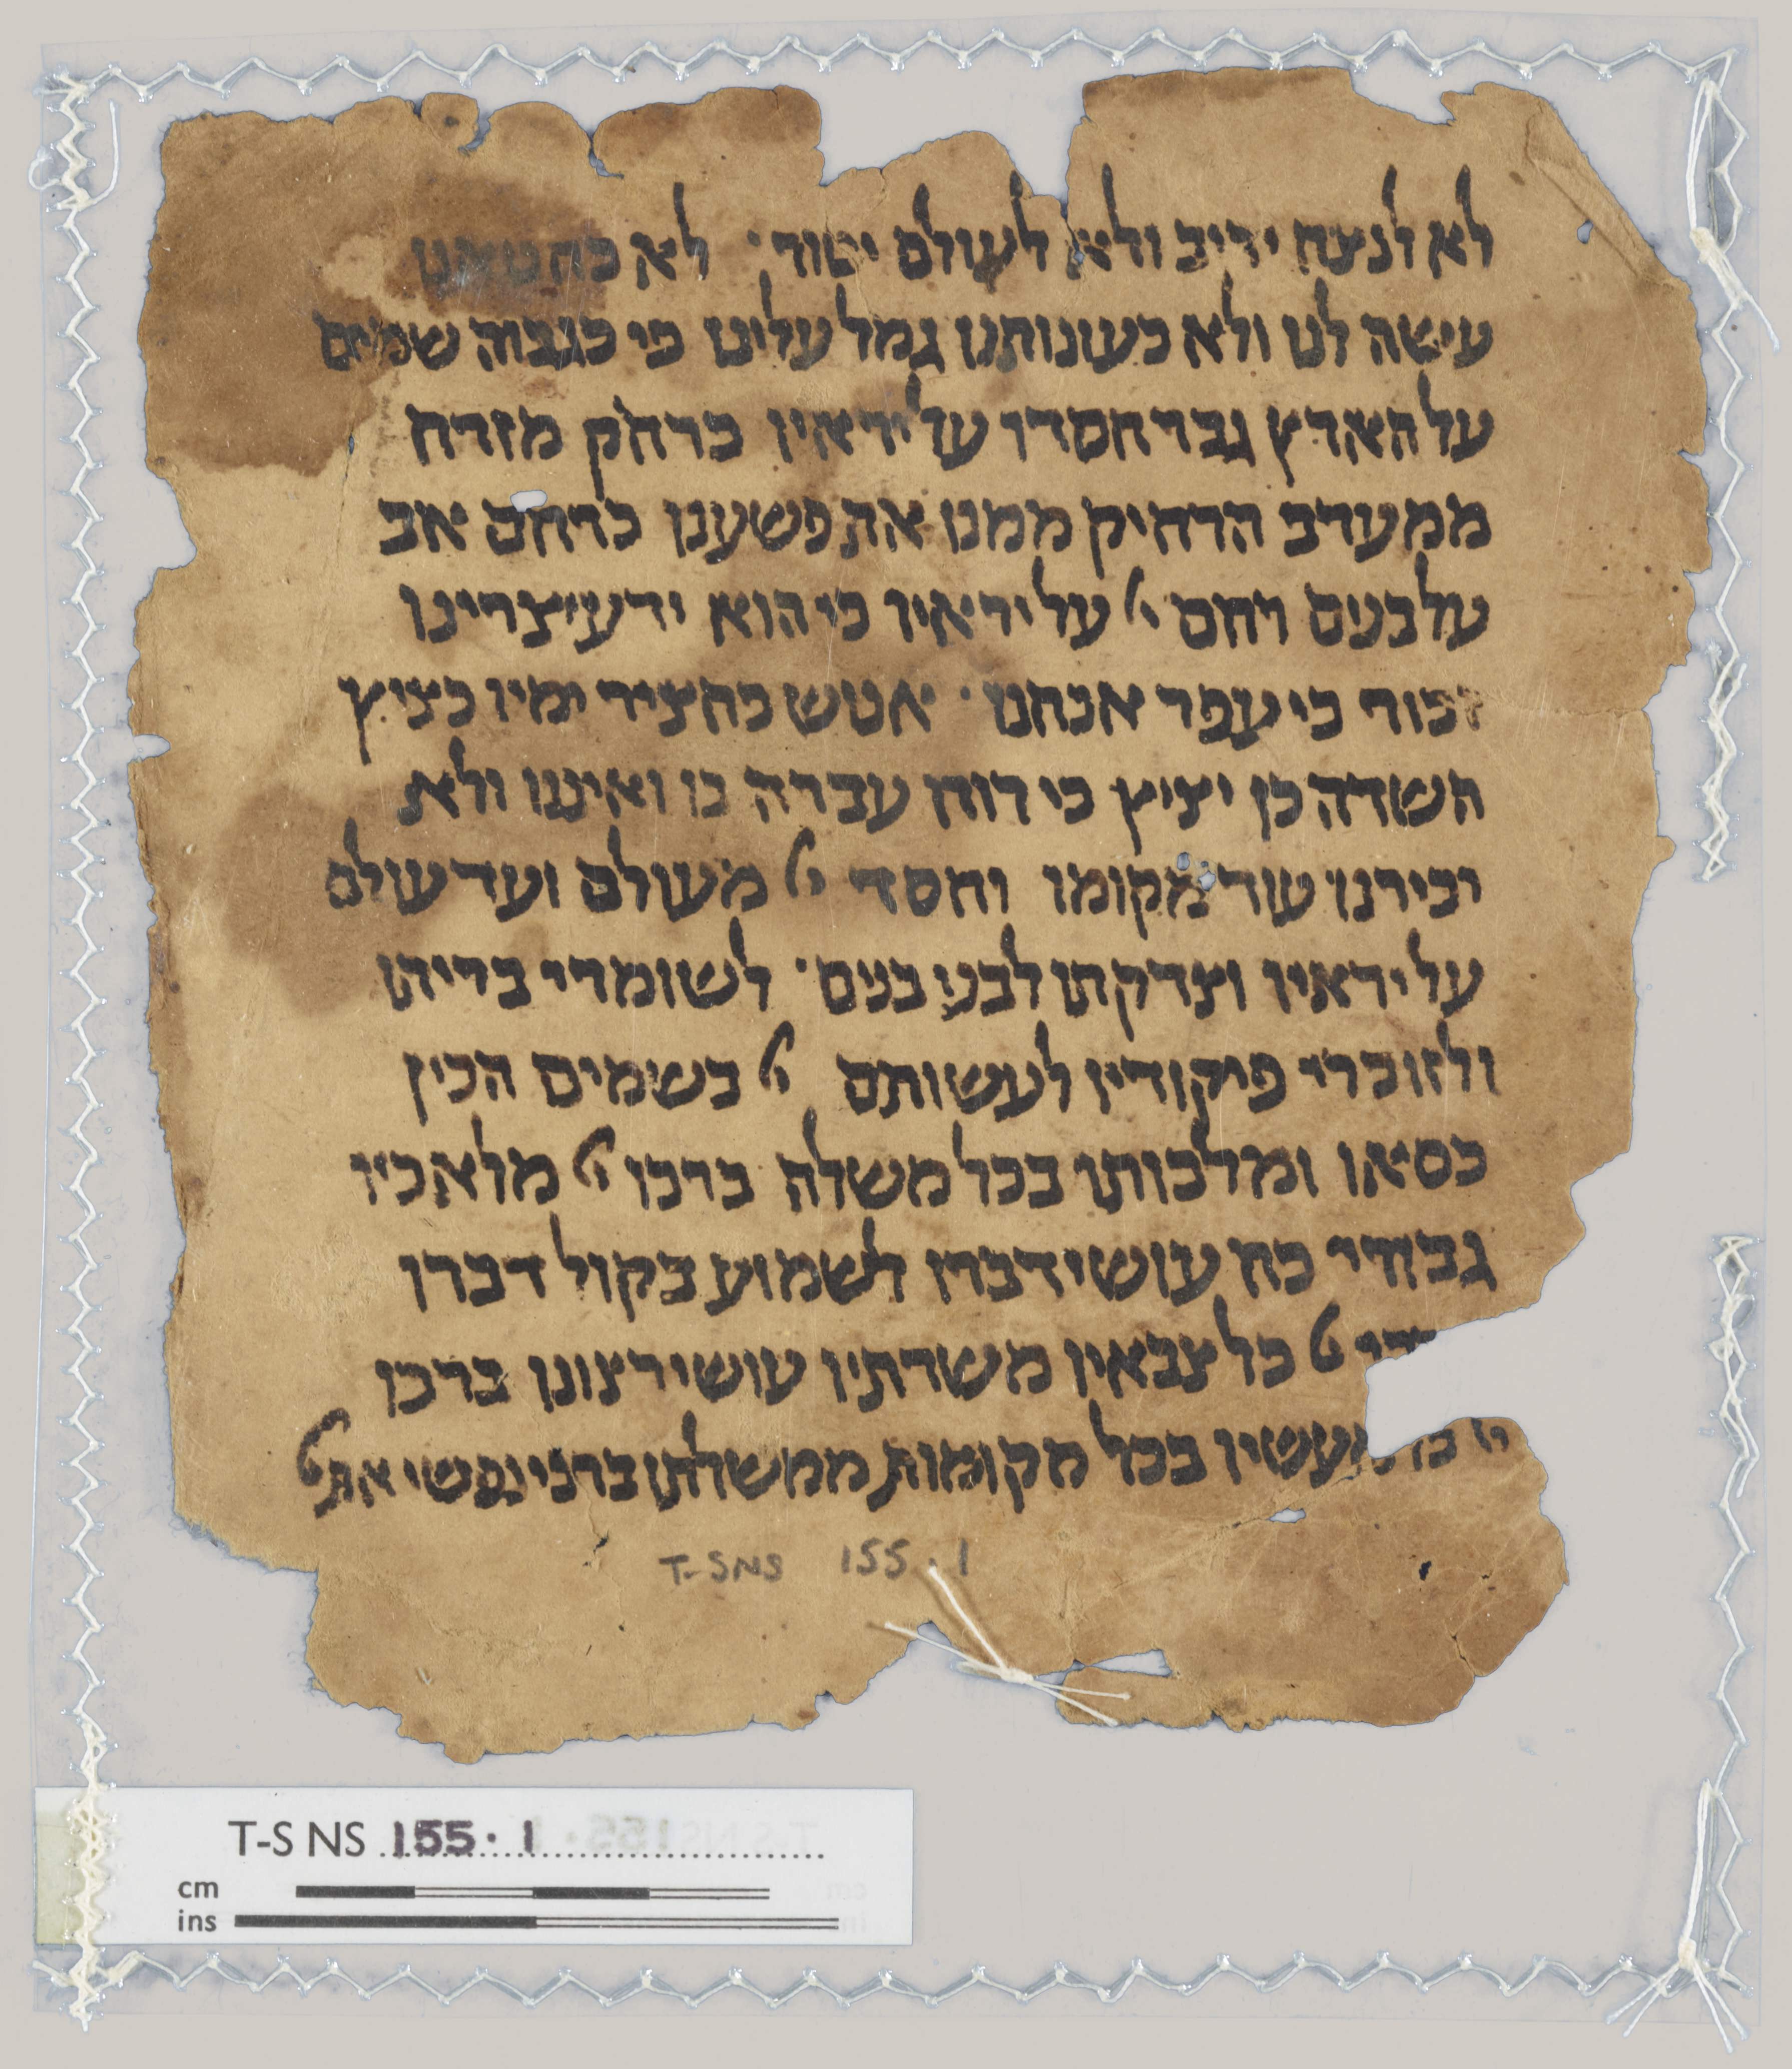 לא לנצח יריב ולא לעולם יטור· לא כחטאנו
עישה לנו ולא כעונותנו גמל עלינו כי כגבוה שמים
על הארץ גבר חסדו על יראיו כרחק מזרח
ממערב הרחיק ממנו את פשענו כרחם אב
על בנים רחם על יראיו כי הוא ידע יצרינו
זכור כי עפר אנחנו· אנוש כחציר ימיו כציץ
השדה כן יציץ כי רוח עברה בו ואיננו ולא
יכירנו עוד מקומו וחסד מעולם ועד עולם
על יראיו וצדקתו לבני בנים· לשומרי בריתו
ולזוכרי פיקודיו לעשותם בשמים הכין
כסאו ומלכותו בכל משלה ברכו מלאכיו
גבורי כח עושי דברו לשמוע בקול דברו
כל צבאיו משרתיו עושי רצונו ברכו
מעשיו בכל מקומות ממשלתו ברכי נפשי את
T-S NS 155.1
T-S NS 155.1
cm
ins